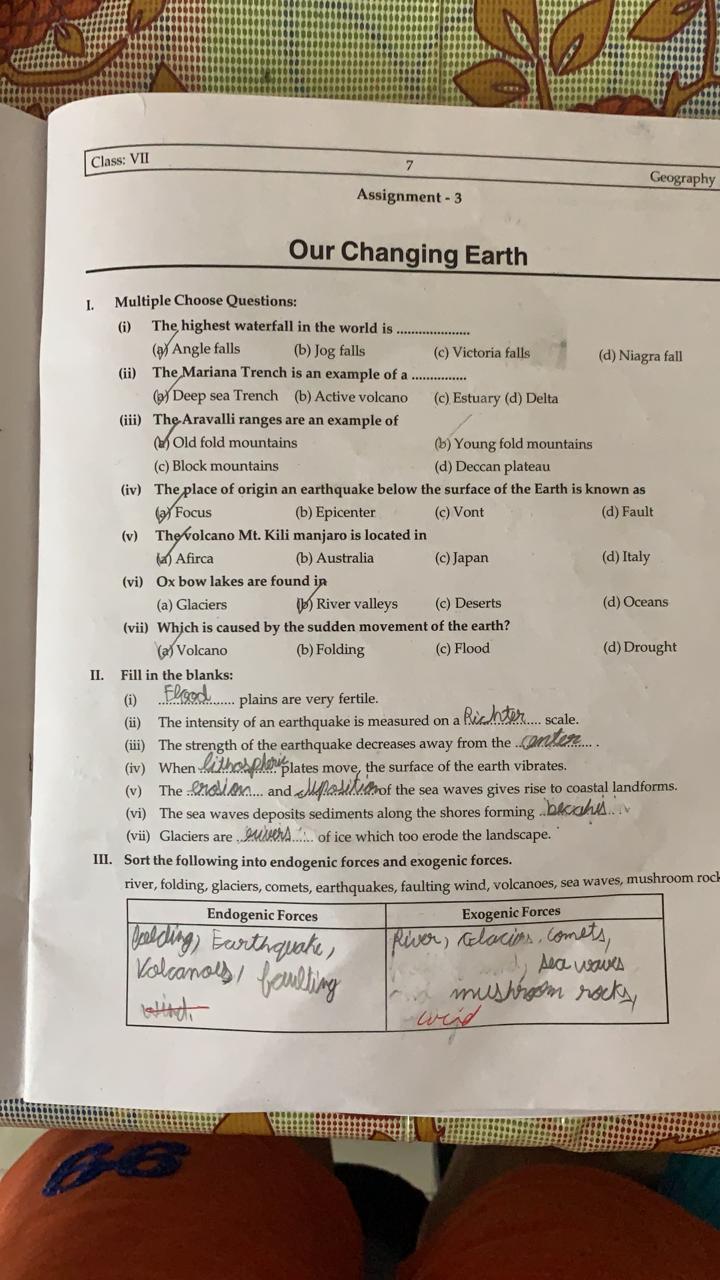 Class: VII 7 Geography
Assignment - 3
Our Changing Earth
I. Multiple Choose Questions:
(i) The highest waterfall in the world is ....................
(a) Angle falls (b) Jog falls (c) Victoria falls (d) Niagra fall
(ii) The Mariana Trench is an example of a ...............
(a) Deep sea Trench (b) Active volcano (c) Estuary (d) Delta
(iii) The Aravalli ranges are an example of
(a) Old fold mountains (b) Young fold mountains
(c) Block mountains (d) Deccan plateau
(iv) The place of origin an earthquake below the surface of the Earth is known as
(a) Focus (b) Epicenter (c) Vont (d) Fault
(v) The volcano Mt. Kili manjaro is located in
(a) Afirca (b) Australia (c) Japan (d) Italy
(vi) Ox bow lakes are found in
(a) Glaciers (b) River valleys (c) Deserts (d) Oceans
(vii) Which is caused by the sudden movement of the earth?
(a) Volcano (b) Folding (c) Flood (d) Drought
II. Fill in the blanks:
(i) Flood plains are very fertile.
(ii) The intensity of an earthquake is measured on a Richter scale.
(iii) The strength of the earthquake decreases away from the center .
(iv) When lithospheric plates move, the surface of the earth vibrates.
(v) The erosion and deposition of the sea waves gives rise to coastal landforms.
(vi) The sea waves deposits sediments along the shores forming
(vii) Glaciers are of ice which too erode the landscape.
III. Sort the following into endogenic forces and exogenic forces.
river, folding, glaciers, comets, earthquakes, faulting wind, volcanoes, sea waves, mushroom rock
Endogenic Forces Exogenic Forces
folding, Earthquake, River, Glacier, comets,
Volcanoes, faulting sea waves
wind. mushroom rocks,
wind
66